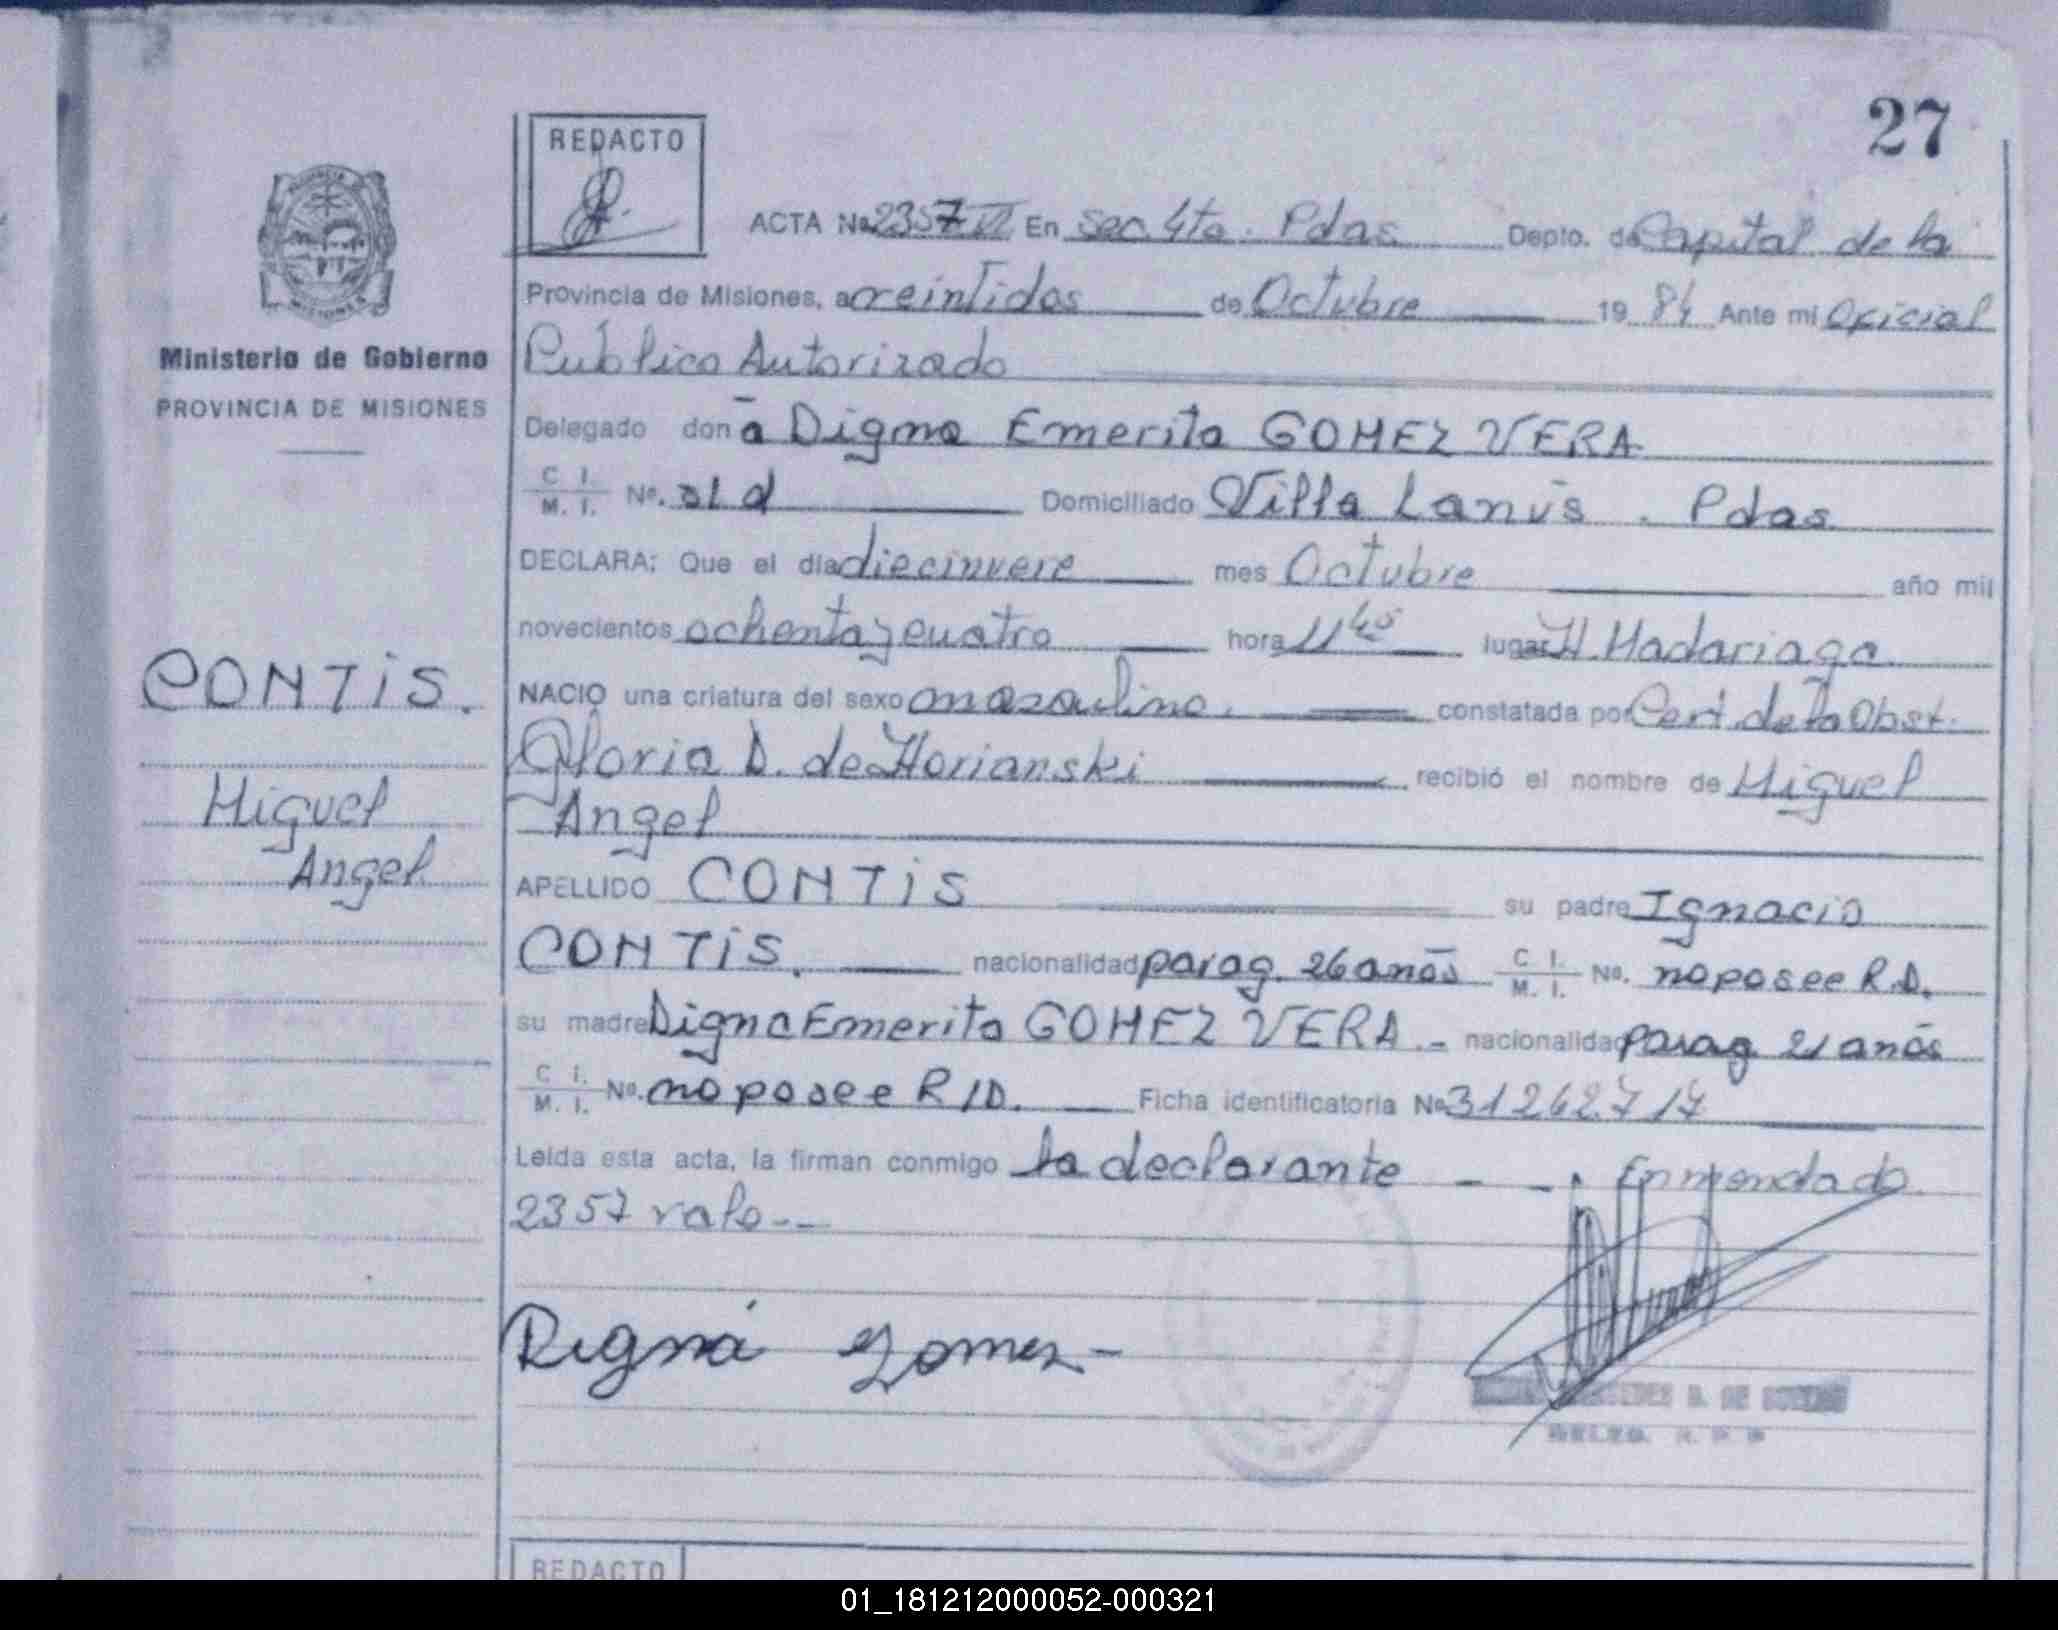 27
REDACTO
ACTA No. 2357 VI En Sec 4ta. Pdas Depto. de Capital de la
Provincia de Misiones, a veintidos de Octubre 19 84 Ante mi Oficial
Ministerio de Gobierno
PROVINCIA DE MISIONES
Público Autorizado
Delegado don a Digna Emerita GOMEZ VERA
C. I. M. I. No. s/d Domiciliado Villa Lanús. Pdas
DECLARA: Que el día diecinueve mes Octubre año mil
novecientos ochenta y cuatro hora 11 45 lugar H. Madariaga
CONTiS.
NACIO una criatura del sexo masculino. constatada por Cert. de la Obst.
Gloria D. de Horianski recibió el nombre de Miguel
Miguel
Angel
Angel
APELLIDO CONTiS su padre Ignacio
CONTiS. nacionalidad parag. 26 años C. I. M. I. No. no posee R.D.
su madre Digna Emerita GOMEZ VERA.- nacionalidad parag 21 años
C. I. M. I. No. no posee R/D. Ficha identificatoria No 31262717
Leída esta acta, la firman conmigo la declarante - - . Enmendado
2357 vale.--
Digna Gomez-
DE
REDACTO
01_181212000052-000321